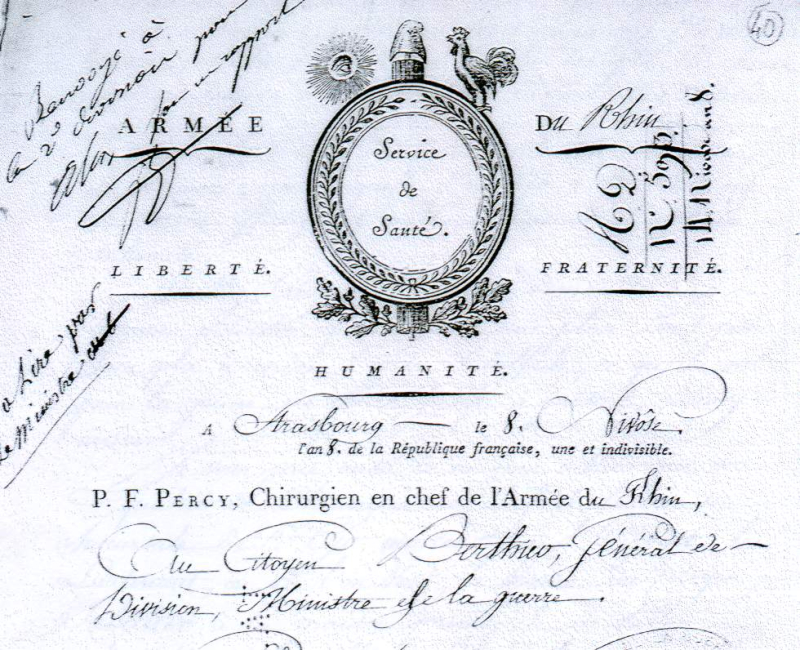 40
Renvoyé à
la 2e division pour
un rapport
ARMÉE
Du Rhin
Service
de
Santé.
LIBERTÉ.
FRATERNITÉ.
HUMANITÉ.
14 Nivôse an 8.
a Lire par
le Ministre
A Strasbourg le 8. Nivôse
l'an 8. de la République française, une et indivisible.
P. F. PERCY, Chirurgien en chef de l'Armée du Rhin,
Au Citoyen Berthier, Général de
Division, Ministre de la guerre.